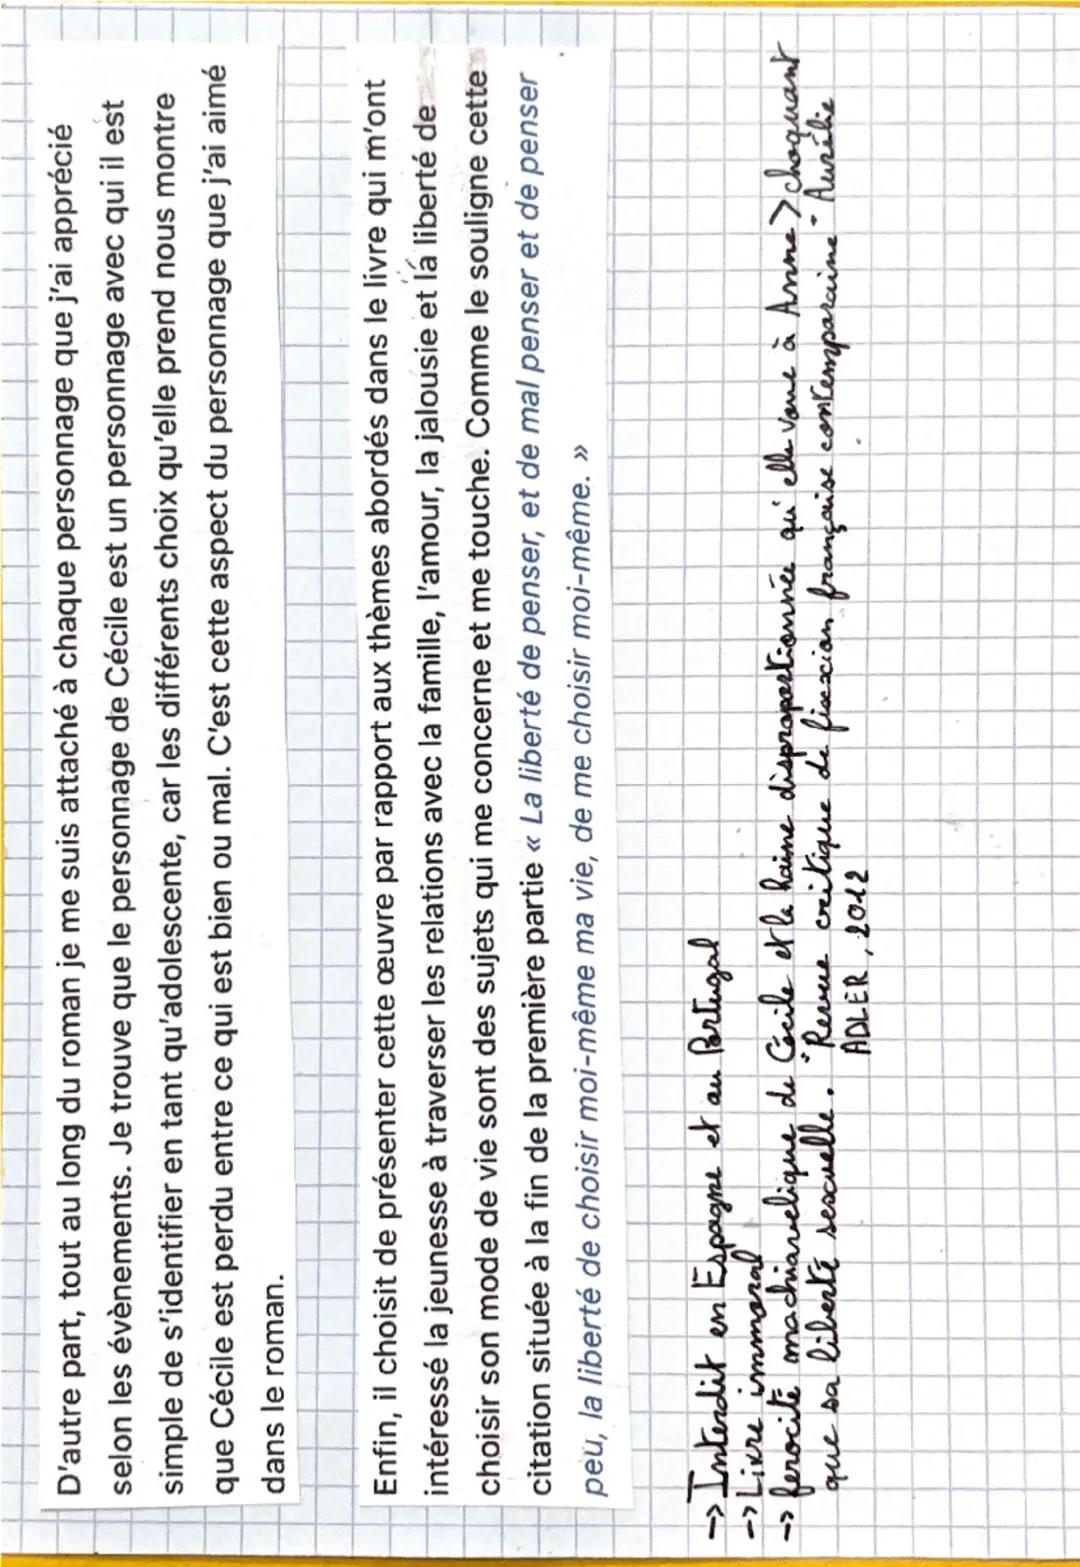 D'autre part, tout au long du roman je me suis attaché à chaque personnage que j'ai apprécié
selon les évènements. Je trouve que le personnage de Cécile est un personnage avec qui il est
simple de s'identifier en tant qu'adolescente, car les différents choix qu'elle prend nous montre
que Cécile est perdu entre ce qui est bien ou mal. C'est cette aspect du personnage que j'ai aimé
dans le roman.
Enfin, il choisit de présenter cette œuvre par rapport aux thèmes abordés dans le livre qui m'ont
intéressé la jeunesse à traverser les relations avec la famille, l'amour, la jalousie et la liberté de
choisir son mode de vie sont des sujets qui me concerne et me touche. Comme le souligne cette
citation située à la fin de la première partie « La liberté de penser, et de mal penser et de penser
peu, la liberté de choisir moi-même ma vie, de me choisir moi-même. »
-> Interdit en Espagne et au Portugal
-> Livre immoral
-> ferocité machiavelique de Cécile et la haine disproportionnée qu'elle voue à Anne > choquant
que sa liberté sexuelle. "Revue critique de fixxion française contemporaine" Aurélie
ADLER, 2012